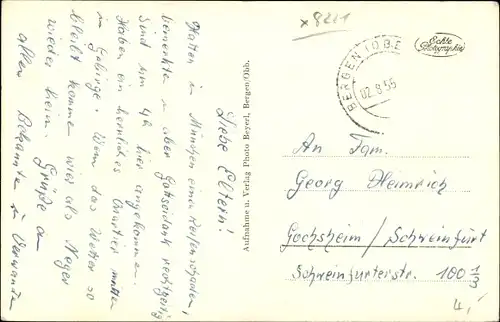 x 8221
Liebe Eltern!
Hatten in München einen Reifenschaden,
bemerkten in aber Gottseidank rechtzeitig
Sind um 4h hier angekommen.
Haben ein herrliches Quartier mitten
im Gebirge. Wenn das Wetter so
bleibt kommen wir als Neger
wieder heim. Grüße an
allen Bekannten u Verwandten
Aufnahme u. Verlag Photo Beyerl, Bergen/Obb.
BERGEN (OBB
02.8.55
Echte
Photographie
An Fam.
Georg Heimrich
Gochsheim / Schweinfurt
Schweinfurterstr. 100 1/3
4,-